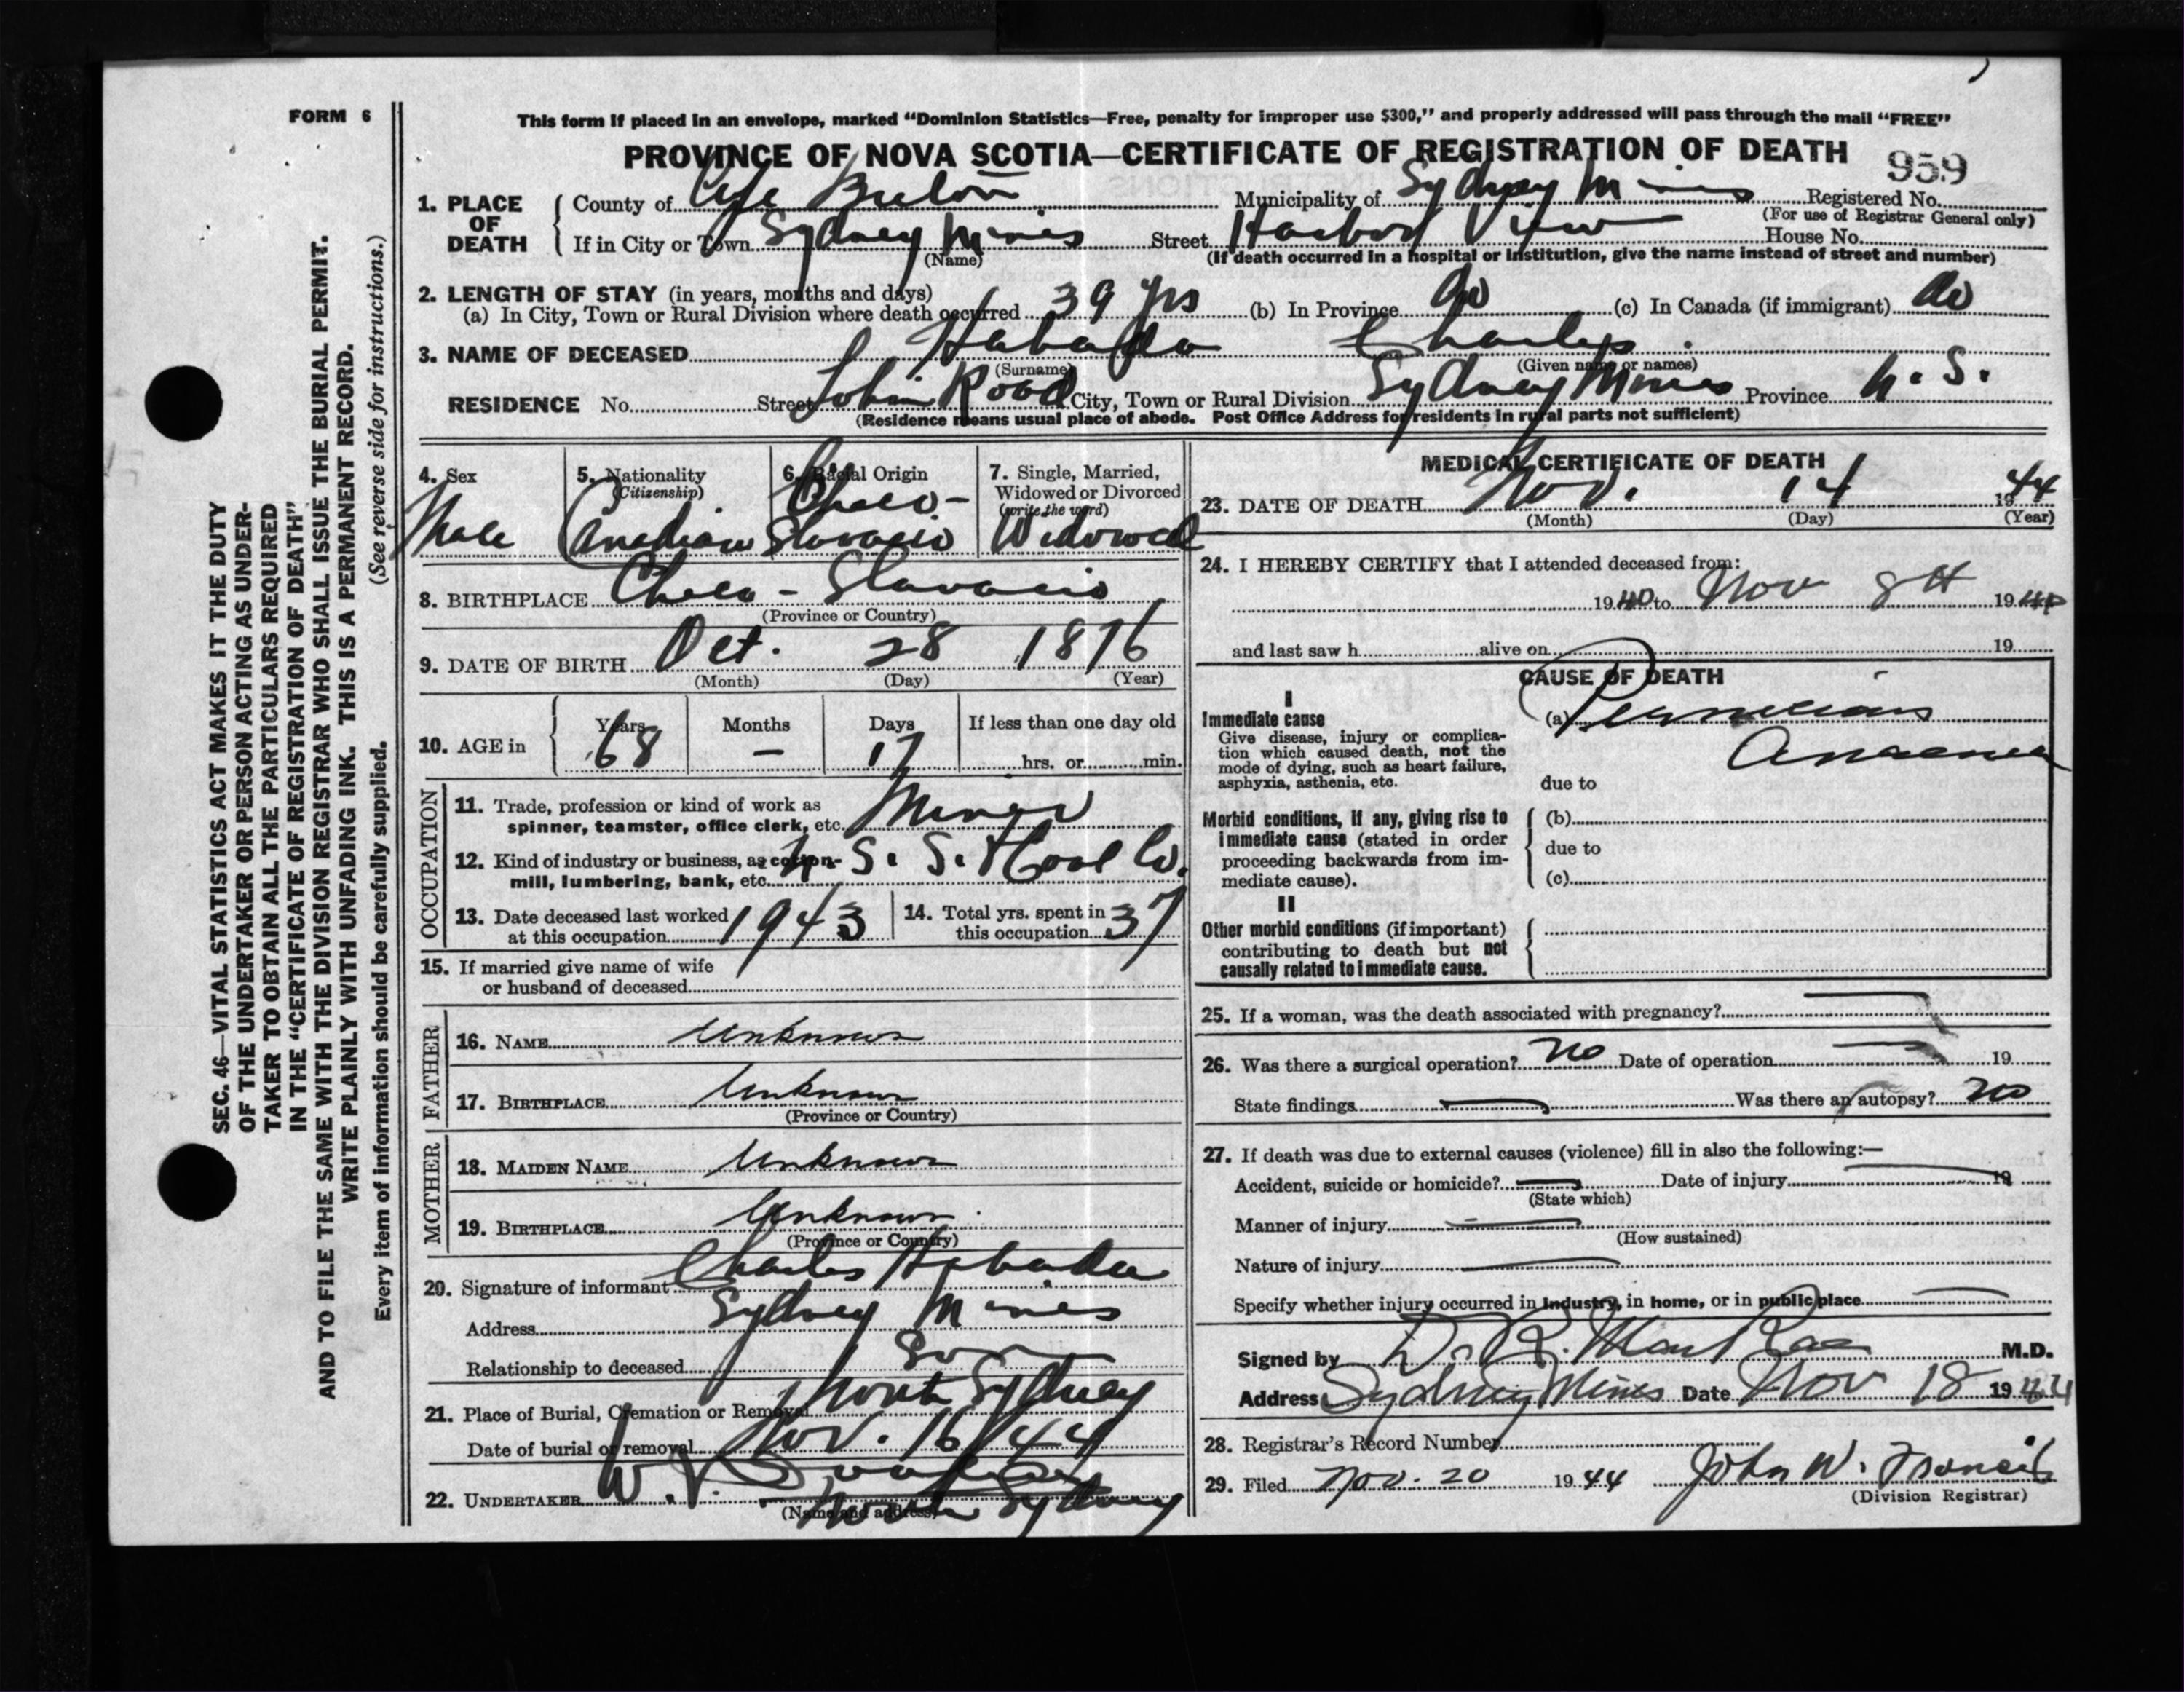 FORM 6
This form if placed in an envelope, marked "Dominion Statistics—Free, penalty for improper use $300," and properly addressed will pass through the mail "FREE"
PROVINCE OF NOVA SCOTIA—CERTIFICATE OF REGISTRATION OF DEATH
959
1. PLACE OF DEATH
County of Cape Breton Municipality of Sydney Mines Registered No.
(For use of Registrar General only)
If in City or Town Sydney Mines Street Harbor View House No.
(Name) (If death occurred in a hospital or institution, give the name instead of street and number)
2. LENGTH OF STAY (in years, months and days)
(a) In City, Town or Rural Division where death occurred 39 yrs (b) In Province do (c) In Canada (if immigrant) do
3. NAME OF DECEASED Charles
(Surname) (Given name or names)
RESIDENCE No. Street Road City, Town or Rural Division Sydney Mines Province N. S.
(Residence means usual place of abode. Post Office Address for residents in rural parts not sufficient)
4. Sex
Male
5. Nationality
(Citizenship)
Canadian
6. Racial Origin
Checo-
Slovacio
7. Single, Married,
Widowed or Divorced
(write the word)
Widowed
8. BIRTHPLACE Checo - Slovacio
(Province or Country)
9. DATE OF BIRTH Oct. 28 1876
(Month) (Day) (Year)
10. AGE in
Years Months Days If less than one day old
68 — 17 hrs. or min.
OCCUPATION
11. Trade, profession or kind of work as
spinner, teamster, office clerk, etc. Miner
12. Kind of industry or business, as cotton-
mill, lumbering, bank, etc. N. S. S. & Coal Co.
13. Date deceased last worked
at this occupation 1943
14. Total yrs. spent in
this occupation 37
15. If married give name of wife
or husband of deceased
FATHER
16. NAME Unknown
17. BIRTHPLACE Unknown
(Province or Country)
MOTHER
18. MAIDEN NAME Unknown
19. BIRTHPLACE Unknown
(Province or Country)
20. Signature of informant Charles
Address Sydney Mines
Relationship to deceased Son
21. Place of Burial, Cremation or Removal North Sydney
Date of burial or removal Nov. 16/44
22. UNDERTAKER
(Name and address) North Sydney
MEDICAL CERTIFICATE OF DEATH
23. DATE OF DEATH Nov. 14 1944
(Month) (Day) (Year)
24. I HEREBY CERTIFY that I attended deceased from:
1940 to Nov 8th 1944
and last saw h alive on 19
CAUSE OF DEATH
I
Immediate cause
Give disease, injury or complica-
tion which caused death, not the
mode of dying, such as heart failure,
asphyxia, asthenia, etc.
(a) Pernicious
Anaemia
due to
Morbid conditions, if any, giving rise to
immediate cause (stated in order
proceeding backwards from im-
mediate cause).
(b)
due to
(c)
II
Other morbid conditions (if important)
contributing to death but not
causally related to immediate cause.
25. If a woman, was the death associated with pregnancy? —
26. Was there a surgical operation? No Date of operation — 19
State findings — Was there an autopsy? No
27. If death was due to external causes (violence) fill in also the following:—
Accident, suicide or homicide? — Date of injury — 19
(State which)
Manner of injury —
(How sustained)
Nature of injury —
Specify whether injury occurred in industry, in home, or in public place —
Signed by D. R. MacRae M.D.
Address Sydney Mines Date Nov 18 1944
28. Registrar's Record Number
29. Filed Nov. 20 1944 John W. Francis
(Division Registrar)
SEC. 46—VITAL STATISTICS ACT MAKES IT THE DUTY
OF THE UNDERTAKER OR PERSON ACTING AS UNDER-
TAKER TO OBTAIN ALL THE PARTICULARS REQUIRED
IN THE "CERTIFICATE OF REGISTRATION OF DEATH"
AND TO FILE THE SAME WITH THE DIVISION REGISTRAR WHO SHALL ISSUE THE BURIAL PERMIT.
WRITE PLAINLY WITH UNFADING INK. THIS IS A PERMANENT RECORD.
Every item of information should be carefully supplied. (See reverse side for instructions.)